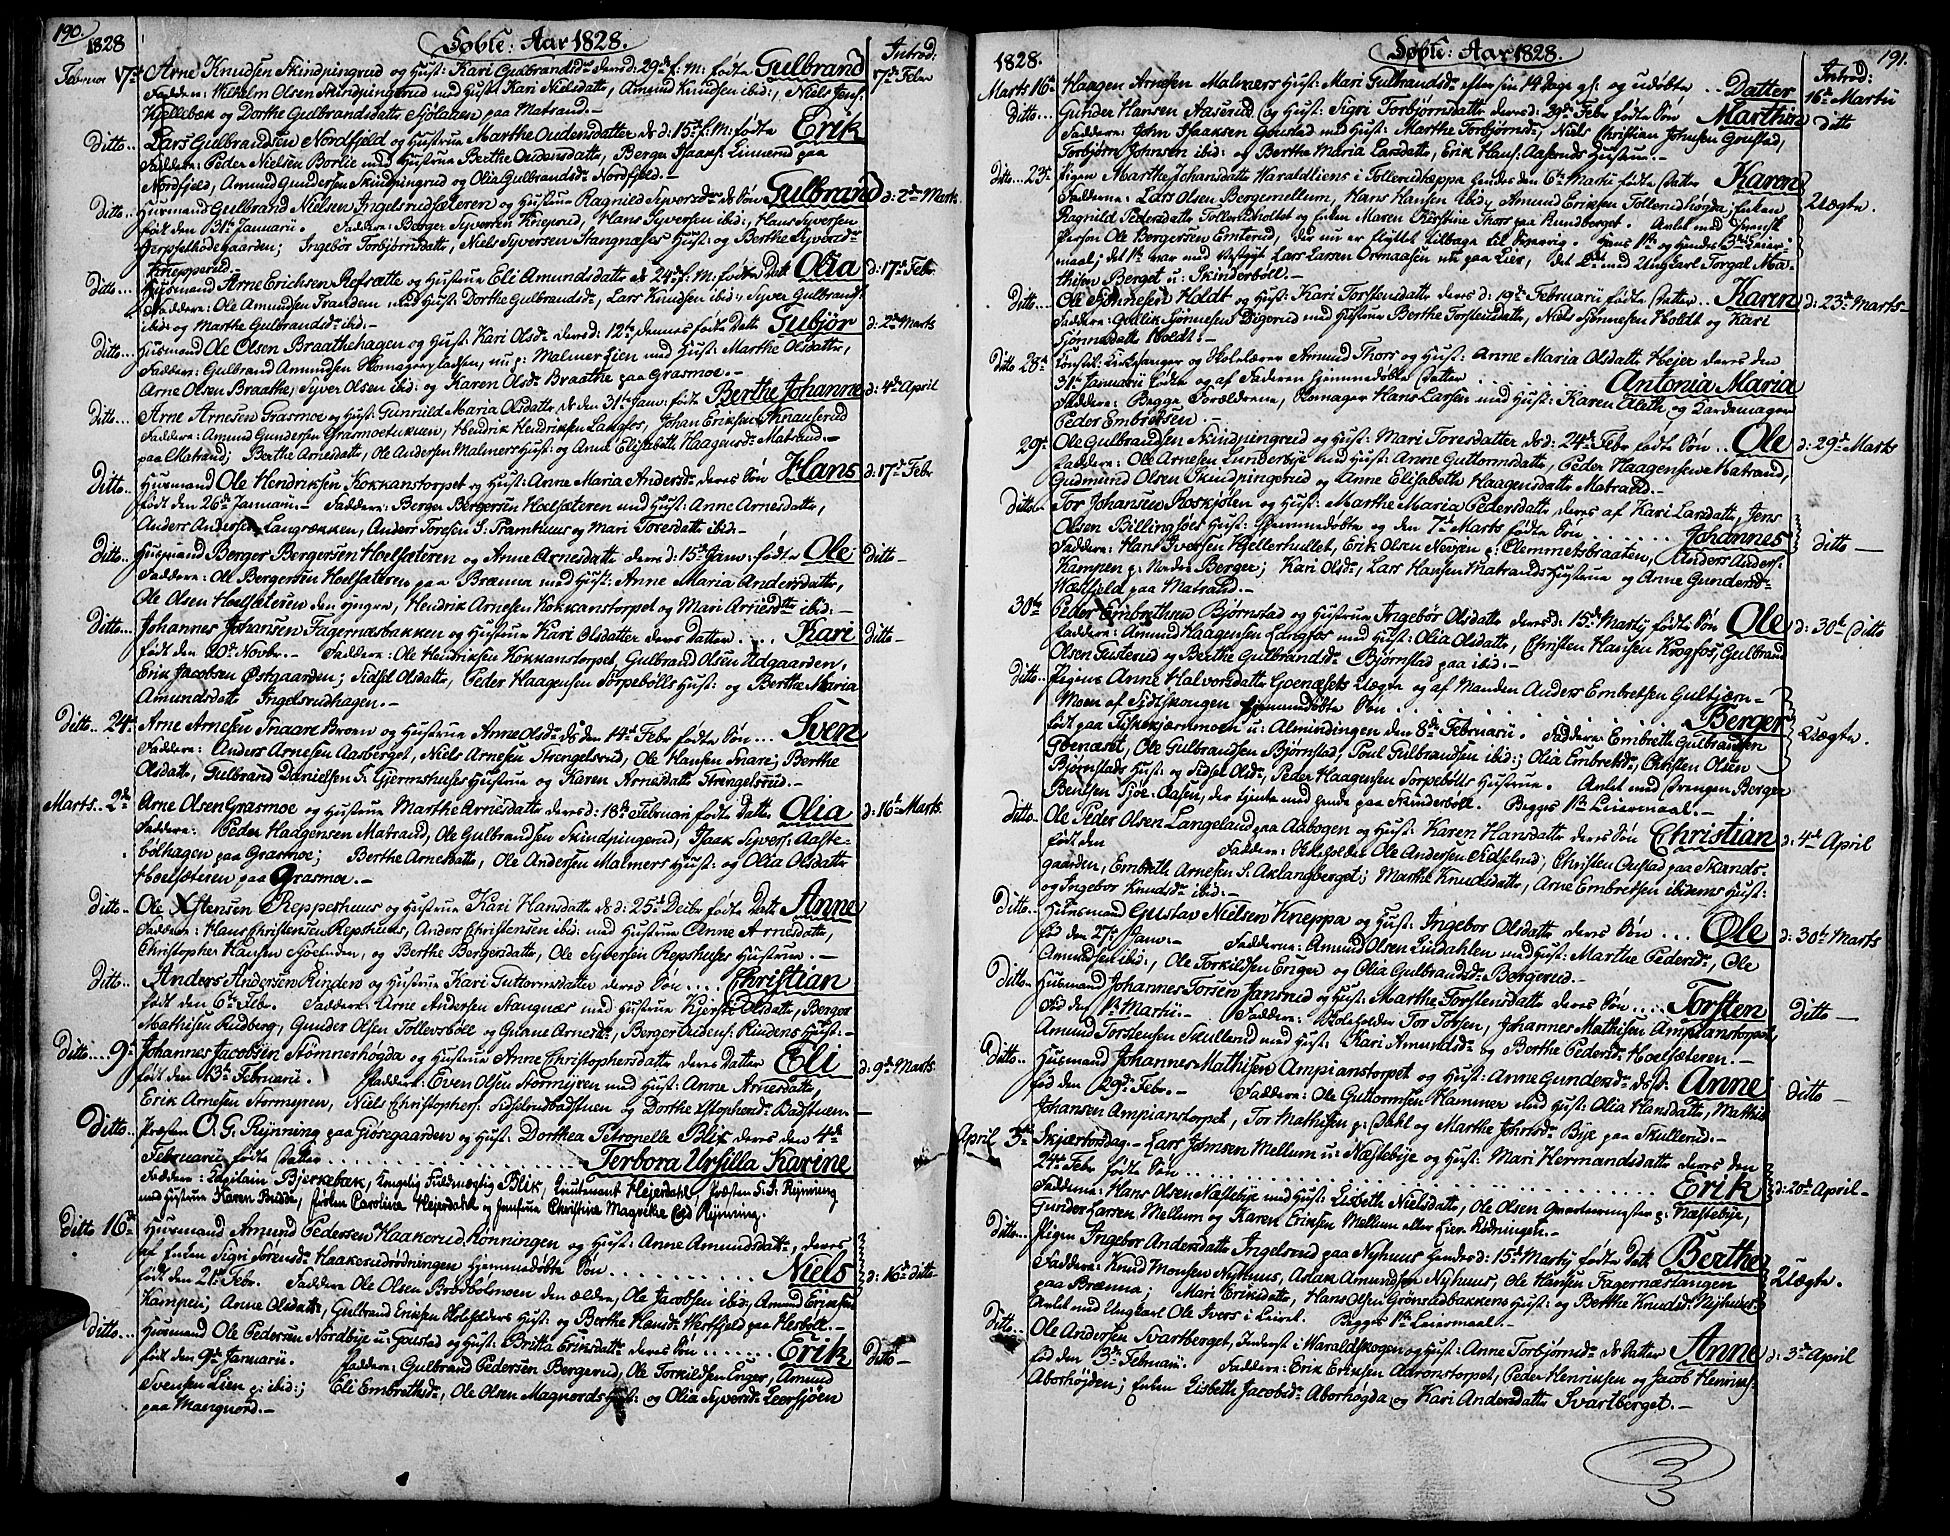 190.
1828
Døbte: Aar 1828.
Introd:
Februar 17de Arne Knudsen Skindpingrud og Hust: Kari Gulbrandsdr deres d: 29de f: M: fødte Gulbrand 17de Febr
Faddere: Vilhelm Olsen Skindpingrud med Hust: Kari Nielsdatte, Amund Knudsen ibid:, Niels Jens:
Kjelleboe og Dorthe Gulbrandsdatte Sjølaaen paa Matrand.
Ditto.. Lars Gulbrandsen Nordfjeld og Hustrue Marthe Oudensdatter ds d: 15de f: M: fødte Erik
Faddere: Peder Nielsen Borlie med Hustrue Berthe Oudensdatte, Berger Isaaks: Linnerud paa
Nordfjeld, Amund Gundersen Skindpingrud og Olia Gulbrandsdr Nordfjeld.
Ditto.. Huusmand Gulbrand Nielsen Ingelsrudsæteren og Hustrue Ragnild Syversdr ds Søn Gulbrand d: 2de Marts
født den 31te Januarii. Faddere: Berger Syversen Kneprud, Hans Syversen ibid:, Hans Syversen
gaarden; Ingebør Torbjørnsdatte, Niels Syversen Stangnæses Hust: og Berthe Syversdr
Kneppereid
Ditto... Husmand Arne Erichsen Refsætte og Hustrue Eli Amundsdatte ds 24de f: M: fødte Datt Olia d: 17de Febr.
Faddere: Ole Amundsen Trandem med Hust: Dorthe Gulbrandsdr, Lars Knudsen ibid:, Syver Gulbrands:
ibid: og Marthe Gulbrandsdr ibid:
Ditto... Husmand Ole Olsen Braathehagen og Hust: Kari Olsdr deres d: 12te dennes fødte Datt Gubjør d: 2de Marts
Faddere: Gulbrand Amundsen Skomagerpladsen, nu p: Malmerlien med Hust: Marthe Olsdatte,
Arne Olsen Braathe, Syver Olsen ibid: og Karen Olsdr Braathe paa Grasmoe.
Ditto... Arne Arnesen Grasmoe og Hust: Gunnild Maria Olsdatte ds den 31te Jan: født Berthe Johanne d: 4de April
Faddere: Amund Gundersen Grasmoetukuen, Hendrik Hendriksen Langfos, Johan Eriksen Knauserud
paa Matrand; Berthe Arnesdatte, Ole Andersen Malmers Hust: og Anne Elisabeth Haagensdr Matrand.
Ditto.. Husmand Ole Hendriksen Kokkanstorpet og Hust: Anne Maria Andersdr deres Søn Hans d: 17de Febr
født den 26de Januarii. Faddere: Berger Bergersen Hoelsæteren med Hust: Anne Arnesdatte,
Anders Andersen Langrækken, Anders Toresen S: Tramhuus og Mari Toresdatte ibid:
Ditto.. Husmand Berger Bergersen Hoelsæteren og Anne Arnesdatte deres d: 15de Jan: fødte Ole Ditto
Faddere: Ole Bergersen Hoelsæteren paa Brænna med Hust: Anne Maria Andersdatte,
Ole Olsen Hoelsæteren den yngre, Hendrik Arnesen Kokkanstorpet og Mari Arnesdtte ibid:
Ditto.... Johannes Johansen Fagernæsbakken og Hustrue Kari Olsdatter deres Datter .... Kari Ditto
født den 20de Novbr. Faddere: Ole Hendriksen Kokkanstorpet, Gulbrand Olsen Udgaarden,
Erik Jacobsen Østgaarden; Sidsel Olsdatte, Peder Haagensen Sørpebølls Hust: og Berthe Maria
Amundsdatte Ingelsrudhagen.
Ditto.. 24de Arne Arnesen Snaare Broen og Hustrue Anne Olsdr ds den 14de Febr fødte Søn ... Sven
Faddere: Anders Arnesen Aasberget, Niels Arnesen Strengelsrud, Ole Hansen Snare; Berthe
Olsdatte, Gulbrand Danielsen S: Gjermshuses Hustrue og Karen Arnesdatte Strengelsrud.
Marts. 2de Arne Olsen Grasmoe og Hustrue Marthe Arnesdatte deres d: 18de Februari fødte Datter Olia d: 16de Marts.
Faddere: Peder Hadgensen Matrand, Ole Gulbrandsen Skindpingrud, Isaak Syvers: Aaste-
bølhagen paa Grasmoe; Berthe Arnesdatte, Ole Andersen Malmers Hust: og Olia Olsdatte
Hoelsæteren paa Grasmoe.
Ditto - Ole Xstensen Reppeshuus og Hustrue Kari Hansdatte ds d: 25de Decbr fødte Datte Anne
Faddere: Hans Christensen Repshuus, Anders Christensen ibid: med Hustrue Anne Arnesdatte,
Christopher Hansen Sjoeenden, og Berthe Bergersdatte, Ole Syversen Repshuses Hustrue.
Ditto.. Anders Andersen Rinden og Hustrue Kari Guttormsdatter deres Søn .... Christian
født den 6te Febr. Faddere: Arne Andersen Stangnæs med Hustrue Kjersti Olsdatte, Berger
Mathisen Rudberg, Gunder Olsen Tollevsbøll og Gurine Arnesdr, Berger Oudens: Rindens Hust:
Ditto.... 9de Johannes Jacobsen Stømnerhøgda og Hustrue Anne Christophersdatte deres Datter Eli d: 9de Marts.
født den 13de Februarii. Faddere: Even Olsen Stormyren med Hust: Anne Arnesdatte,
Erik Arnesen Stormyren, Niels Christophers: Sidselrudbadstuen og Dorthe Xstophersdr Badstuen.
Ditto.. Præsten O. G. Reynning paa Gjøsegaarden og Hust: Dorthea Petronelle Blix deres den 4de
Februarii fødte Datter ............ Terbora Ursilla Karine
Faddere: Capitain Bjerkebæk, Kongelig Fuldmægtig Blix, Lieutenant Heierdahl, Præsten S. J. Reynning
med Hustrue Karen Budde, Frøken Caroline Heierdahl og Jomfrue Christine Magrethe Rynning.
Ditto 16de Husmand Amund Pedersen Haakerud Rønningen og Hust: Anne Amundsdatte, deres
af Enken Sigri Sørensdr Haakerudrødningen hjemmedøbte Søn .......... Niels d: 16de Ditto
født den 21de Febr. Faddere Ole Olsen Brødbolmoen den ældre, Ole Jacobsen ibid:, Amund Eriksen
Kampen; Anne Olsdatte, Gulbrand Eriksen Holsfelders Hust: og Berthe Hansdr Westfjeld paa Herbøll.
Ditto.. Husmand Ole Pedersen Nordbye u: Goustad og Hust: Britta Eriksdatte deres Søn ...... Erik Ditto
født den 9de Januarii. Faddere: Gulbrand Pedersen Bergerud, Ole Torkildsen Enger, Amund
Svensen Lien p: ibid:, Eli Embrethsdr, Ole Olsen Magnords Hust: og Olia Syversdr Leersjøen
paa Mangnord.
191.
1828.
Døbte: Aar 1828.
Introd:
Marts 16de Haagen Arnesen Malmers Hust: Mari Gulbrandsdr efter sin 14 Dage gl: og udøbte .. Datter 16de Martii
Ditto.. Gunder Hansen Aaserud og Hust: Sigri Torbjørnsdatte deres d: 29de Febr fødte Søn Marthin Ditto
Faddere: John Isaaksen Goustad med Hust: Marthe Torbjørnsdr, Niels Christian Johnsen Goustad,
Torbjørn Johnsen ibid: og Berthe Maria Larsdatte, Erik Hans: Aaseruds Hustrue.
Ditto... 23de Pigen Marthe Johansdatte Haraldliens i Tollerudkæppa hendes den 6te Martii fødte Datter Karen
Faddere: Lars Olsen Bergemellum, Hans Hansen ibid:, Amund Eriksen Tollerudhøgda; Enken Uægte.
Ragnild Pedersdatte Tollerudholtet og Enken Maren Kirstine Thors paa Rundberget. Avlet med Svensk
Person Ole Bergersen Emterud, der nu er flyttet tilbage til Sverrig. Hans 1te og Hendes 3die Leier-
maal; det 1te var med Lars Larsen Ormaasen nu paa Lier, det 2det med Ungkarl Torgal Ma-
thisen Berget u: Skinderbøll.
Ditto.. Ole Sjønnesen Holdt og Hust: Kari Torstensdatte deres d: 19de Februarii fødte Datter .. Karen d: 23de Marts
Faddere: Gudlik Sjønnesen Digerud med Hustrue Berthe Torstensdatte, Niels Sjønnesen Holdt og Kari
Sjønnsdatte Holdt.
Ditto 28de Constit: Kirkesanger og Skolelærer Amund Thors og Hust: Anne Maria Olsdatte Heier deres den
31te Januarii fødte og af Faderen hjemmedøbte Datter ....... Antonia Maria
Faddere: Begge Forældrene, Skomager Hans Larsen med Hust: Karen Aleth og Kardemager
Peder Embretsen.
29de Ole Gulbrandsen Skindpingrud og Hust: Mari Toresdatter ds d: 24de Febr fødte Søn .. Ole d: 29de Marts
Faddere: Ole Arnesen Lunderbye med Hust: Anne Guttormsdatte, Peder Haagensen Matrand,
Gudmund Olsen Skindpingrud og Anne Elisabeth Haagensdatte Matrand.
Ditto.. Tor Johansen Roskjølen og Hust: Marthe Maria Pedersdatte deres af Kari Larsdatte, Jens
Olsen Billingfoes Hust: hjemmedøbte og den 7de Marts fødte Søn ...... Johannes Ditto
Faddere: Hans Iversen Kjellerhullet, Erik Olsen Nevjen p: Clemmetsbraaten, Anders Anders:
Kampen p: Nordre Berger; Kari Olsdr, Lars Hansen Matrands Hustrue og Anne Gundersdr
Westfjeld paa Matrand.
30te Peder Embrethsen Bjørnstad og Hustrue Ingebør Olsdatte deres d: 15de Martij fødte Søn Ole d: 30te Ditto
Faddere: Amund Haagensen Langfos med Hust: Olia Olsdatte, Christen Hansen Krogfos, Gulbrand
Olsen Tusterud og Berthe Gulbrandsdr Bjørnstad paa ibid:
Ditto.. Pigens Anne Halvorsdatte Goenæsets Uægte og af Manden Anders Embretsen Gultjærn-
Moen af Sidskongen hjemmedøbte Søn .............. Berger
født paa Tiskekjærnmoen u: Almindingen den 8de Februarii. Faddere: Embreth Gulbrandsen Uægte.
Goenæset, Ole Gulbrandsen Bjørnstad, Poul Gulbrandsen ibid:; Olia Embretsdr, Christen Olsen
Bjørnstads Hust: og Sidsel Olsdr, Peder Haagensen Sørpebølls Hustrue. Avlet med Drengen Berger
Bentsen Sjøe-Aasen, der tjente med hende paa Skinderbøll. Begges 1te Leiermaal.
Ditto Ole Peder Olsen Langeland paa Aabogen og Hust: Karen Hansdatte deres Søn Christian d: 4de April
født den Faddere: Skoleholder Ole Andersen Sidselrud, Christen Oustad paa Skands-
gaarden, Embreth Arnesen S: Aklangberget; Marthe Knudsdatte, Arne Embretsen ibidems Hust:
og Ingebor Knudsdr ibid:
Ditto.. Huusmand Gustav Nielsen Kneppa og Hust: Ingebor Olsdatte deres Søn ... Ole d: 30te Marts
fød den 27de Jan: Faddere: Amund Olsen Liudahlen med Hust: Marthe Pedersdr, Ole
Amundsen ibid:, Ole Torkildsen Enger og Olia Gulbrandsdr Bergerud.
Ditto. Husmand Johannes Torsen Jansrud og Hust: Marthe Torstensdatte deres Søn .... Torsten Ditto
fød den 1te Martii. Faddere: Skoleholder Tor Torsen, Johannes Mathisen Ampianstorpet,
Amund Torstensen Skullerud med Hust: Kari Amundsdr og Berthe Pedersdr Hoelsæteren.
Ditto.. Husmand Johannes Mathisen Ampianstorpet og Hust: Anne Gundersdr ds D: Anne Ditto
fød den 29de Febr. Faddere: Ole Guttormsen Hammer med Hust: Olia Hansdatte, Mathis
Johansen Ampianstorpet, Tor Mathisen p: Dahl og Marthe Johnsdr Bye paa Skullerud.
April 3de Skjærtorsdag. Lars Johnsen Mellum u: Næstebye og Hust: Mari Hermandsdatte deres den
24de Febr fødte Søn ................ Erik d: 20de April
Faddere: Hans Olsen Næstebye med Hust: Lisbeth Nielsdatte, Ole Olsen Quartermester p: Næstebye,
Gunder Larsen Mellum og Karen Eriksen Mellum eller Lier-Rødningen.
Ditto... Pigen Ingebor Andersdatte Ingelsrud paa Nyhuus hendes d: 15de Martij fødte Datt Berthe
Faddere: Knud Monsen Nyhuus, Aslak Amundsen Nyhuus, Ole Hansen Fagernæstangen Uægte.
paa Brænna; Mari Eriksdatte, Hans Olsen Grønrudbakkens Hust: og Berthe Knudsdr Nyhuus.
Avlet med Ungkarl Ole Ivers: i Leiret. Begges 1te Leiermaal.
Ditto.. Ole Andersen Svartberget, Inderst i Waraldskogen og Hust: Anne Torbjørnsdr ds Datter Anne d: 3de April
fød den 3de Februarii. Faddere: Erik Eriksen Aaronstorpet, Peder Henriksen og Jacob Henriks:
Aborhøjden; Enken Lisbeth Jacobsdr Aborhøgda og Kari Andersdatte Svartberget.